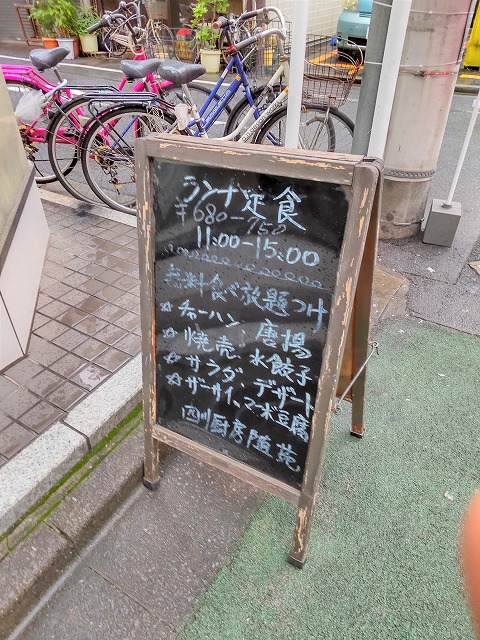 ランチ定食
¥680-750
11:00-15:00
無料食べ放題つけ
☆チャーハン、唐揚
☆焼売、水餃子
☆サラダ デザート
☆ザーサイ、マーボ豆腐
四川厨房随苑